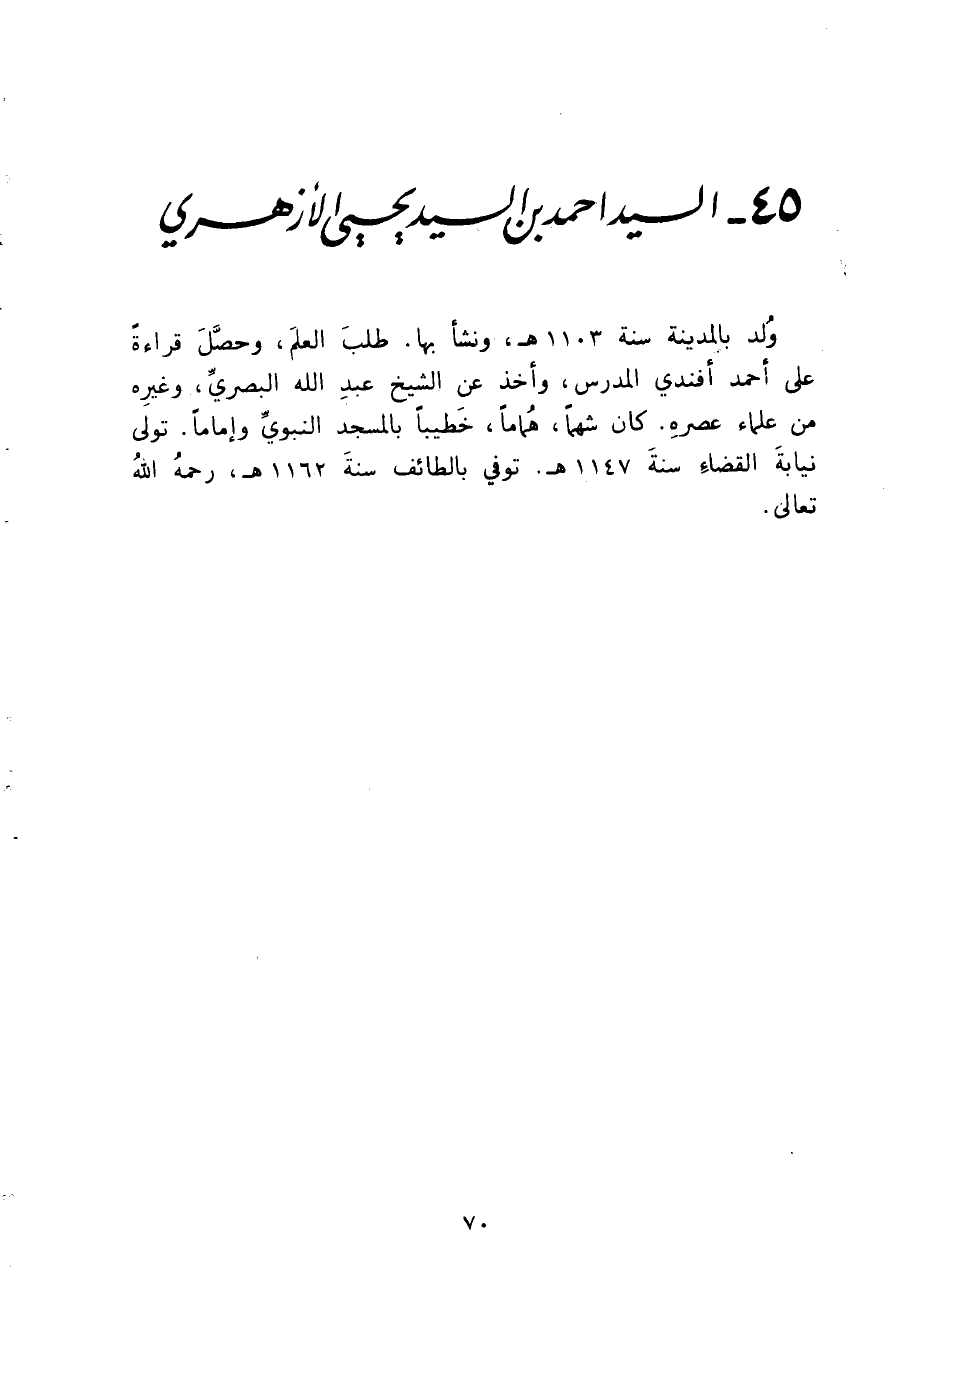 ٤٥ ـ السيد احمد بن السيد يحيى الأزهري
وُلد بالمدينة سنة ١١٠٣ هـ، ونشأ بها. طلبَ العلمَ، وحصَّلَ قراءةً
على أحمد أفندي المدرس، وأخذ عن الشيخ عبدِ الله البصريِّ، وغيرِه
من علماء عصرهِ. كان شهماً، هُماماً، خَطيباً بالمسجد النبويِّ وإماماً. تولى
نيابةَ القضاءِ سنةَ ١١٤٧ هـ. توفي بالطائف سنةَ ١١٦٢ هـ، رحمهُ اللهُ
تعالى.
٧٠